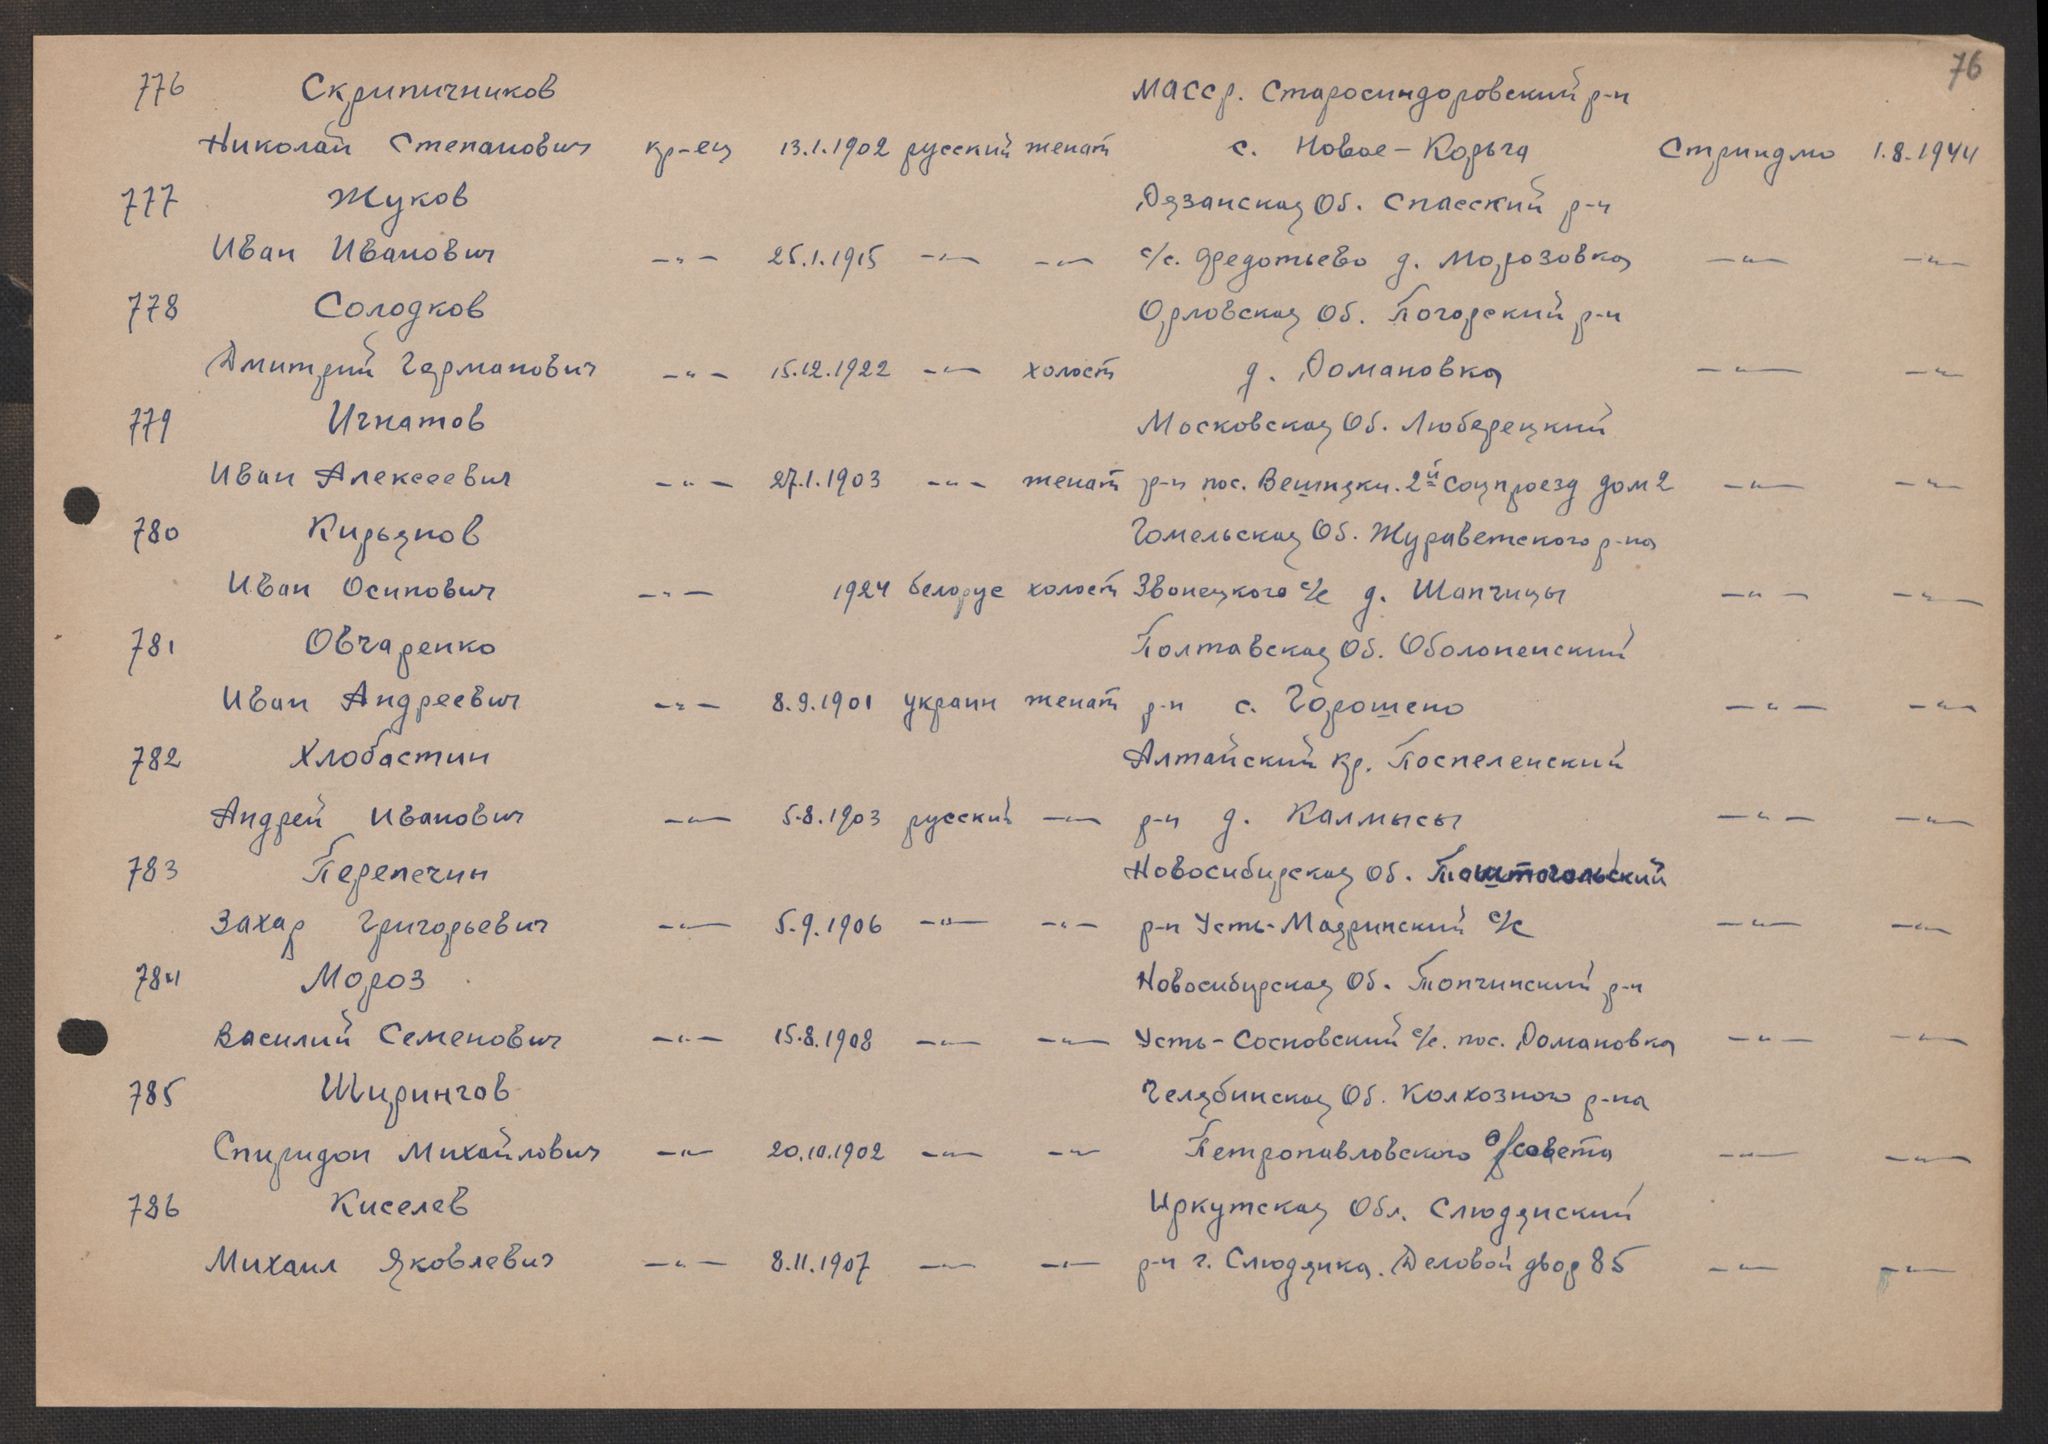 76
776 Скрипичников МАССр. Старосиндоровский р-н
Николай Степанович кр-ец 13.1.1902 русский женат с. Новое-Корьга Стриндмо 1.8.1944
777 Жуков Рязанская Об. Спасский р-н
Иван Иванович -"- 25.1.1915 -"- -"- с/с. Федотьево д. Морозовка -"- -"-
778 Солодков Орловская Об. Погорский р-н
Дмитрий Германович -"- 15.12.1922 -"- холост д. Романовка -"- -"-
779 Игнатов Московская Об. Люберецкий
Иван Алексеевич -"- 27.1.1903 -"- женат р-н пос. Вешняки. 2й Соцпроезд дом 2 -"- -"-
780 Кирьянов Гомельская Об. Жураветского р-на
Иван Осипович -"- 1924 белорус холост Звонецкого с/с д. Шапчицы -"- -"-
781 Овчаренко Полтавская Об. Оболоненский
Иван Андреевич -"- 8.9.1901 украин женат р-н с. Горошено -"- -"-
782 Хлобастин Алтайский кр. Поспеленский
Андрей Иванович -"- 5.8.1903 русский -"- р-н д. Калмысы -"- -"-
783 Перепечин Новосибирская Об. Таштогольский
Захар Григорьевич -"- 5.9.1906 -"- -"- р-н Усть-Мазринский с/с -"- -"-
784 Мороз Новосибирская Об. Топчинский р-н
Василий Семенович -"- 15.8.1908 -"- -"- Усть-Сосновский с/с. пос. Романовка -"- -"-
785 Ширингов Челябинская Об. Колхозного р-на
Спиридон Михайлович -"- 20.10.1902 -"- -"- Петропавловского с/совета -"- -"-
786 Киселев Иркутская Обл. Слюдянский
Михаил Яковлевич -"- 8.11.1907 -"- -"- р-н г. Слюдянка. Деловой двор 85 -"- -"-